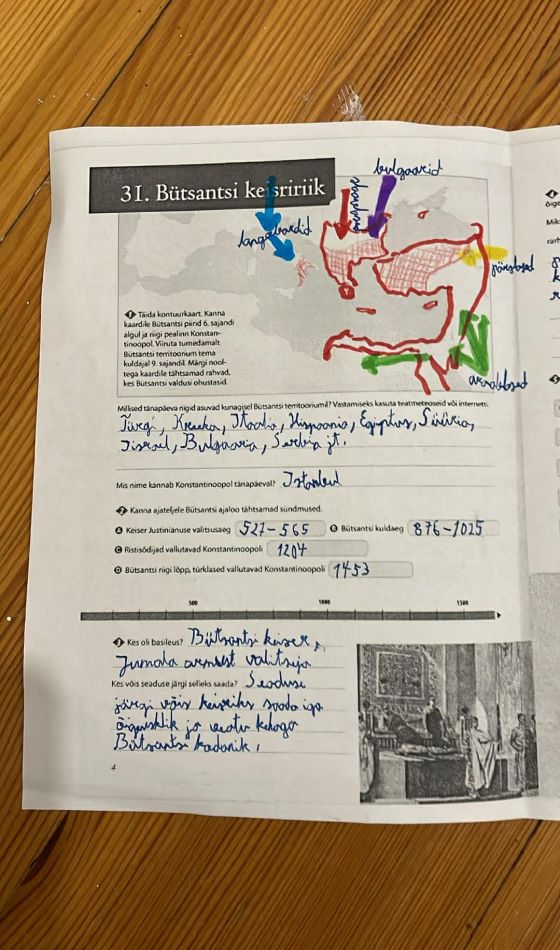 31. Bütsantsi keisririik
bulgaarid
langobardid
pärslased
araablased
1 Täida kontuurkaart. Kanna
kaardile Bütsantsi piirid 6. sajandi
algul ja riigi pealinn Konstan-
tinoopol. Viiruta tumedamalt
Bütsantsi territoorium tema
kuldajal 9. sajandil. Märgi nool-
tega kaardile tähtsamad rahvad,
kes Bütsantsi valdusi ohustasid.
Millised tänapäeva riigid asuvad kunagisel Bütsantsi territooriumil? Vastamiseks kasuta teatmeteoseid või internetti.
Türgi, Kreeka, Itaalia, Hispaania, Egiptus, Süüria,
Iisrael, Bulgaaria, Serbia jt.
Mis nime kannab Konstantinoopol tänapäeval? Istanbul
2 Kanna ajateljele Bütsantsi ajaloo tähtsamad sündmused.
A Keiser Justinianuse valitsusaeg 527-565 B Bütsantsi kuldaeg 876-1025
C Ristisõdijad vallutavad Konstantinoopoli 1204
D Bütsantsi riigi lõpp, türklased vallutavad Konstantinoopoli 1453
500 1000 1500
3 Kes oli basileus? Bütsantsi keiser,
Jumala armust valitseja
Kes võis seaduse järgi selleks saada? Seaduse
järgi võis keisriks saada iga
õigeusklik ja veatu kehaga
Bütsantsi kodanik.
4